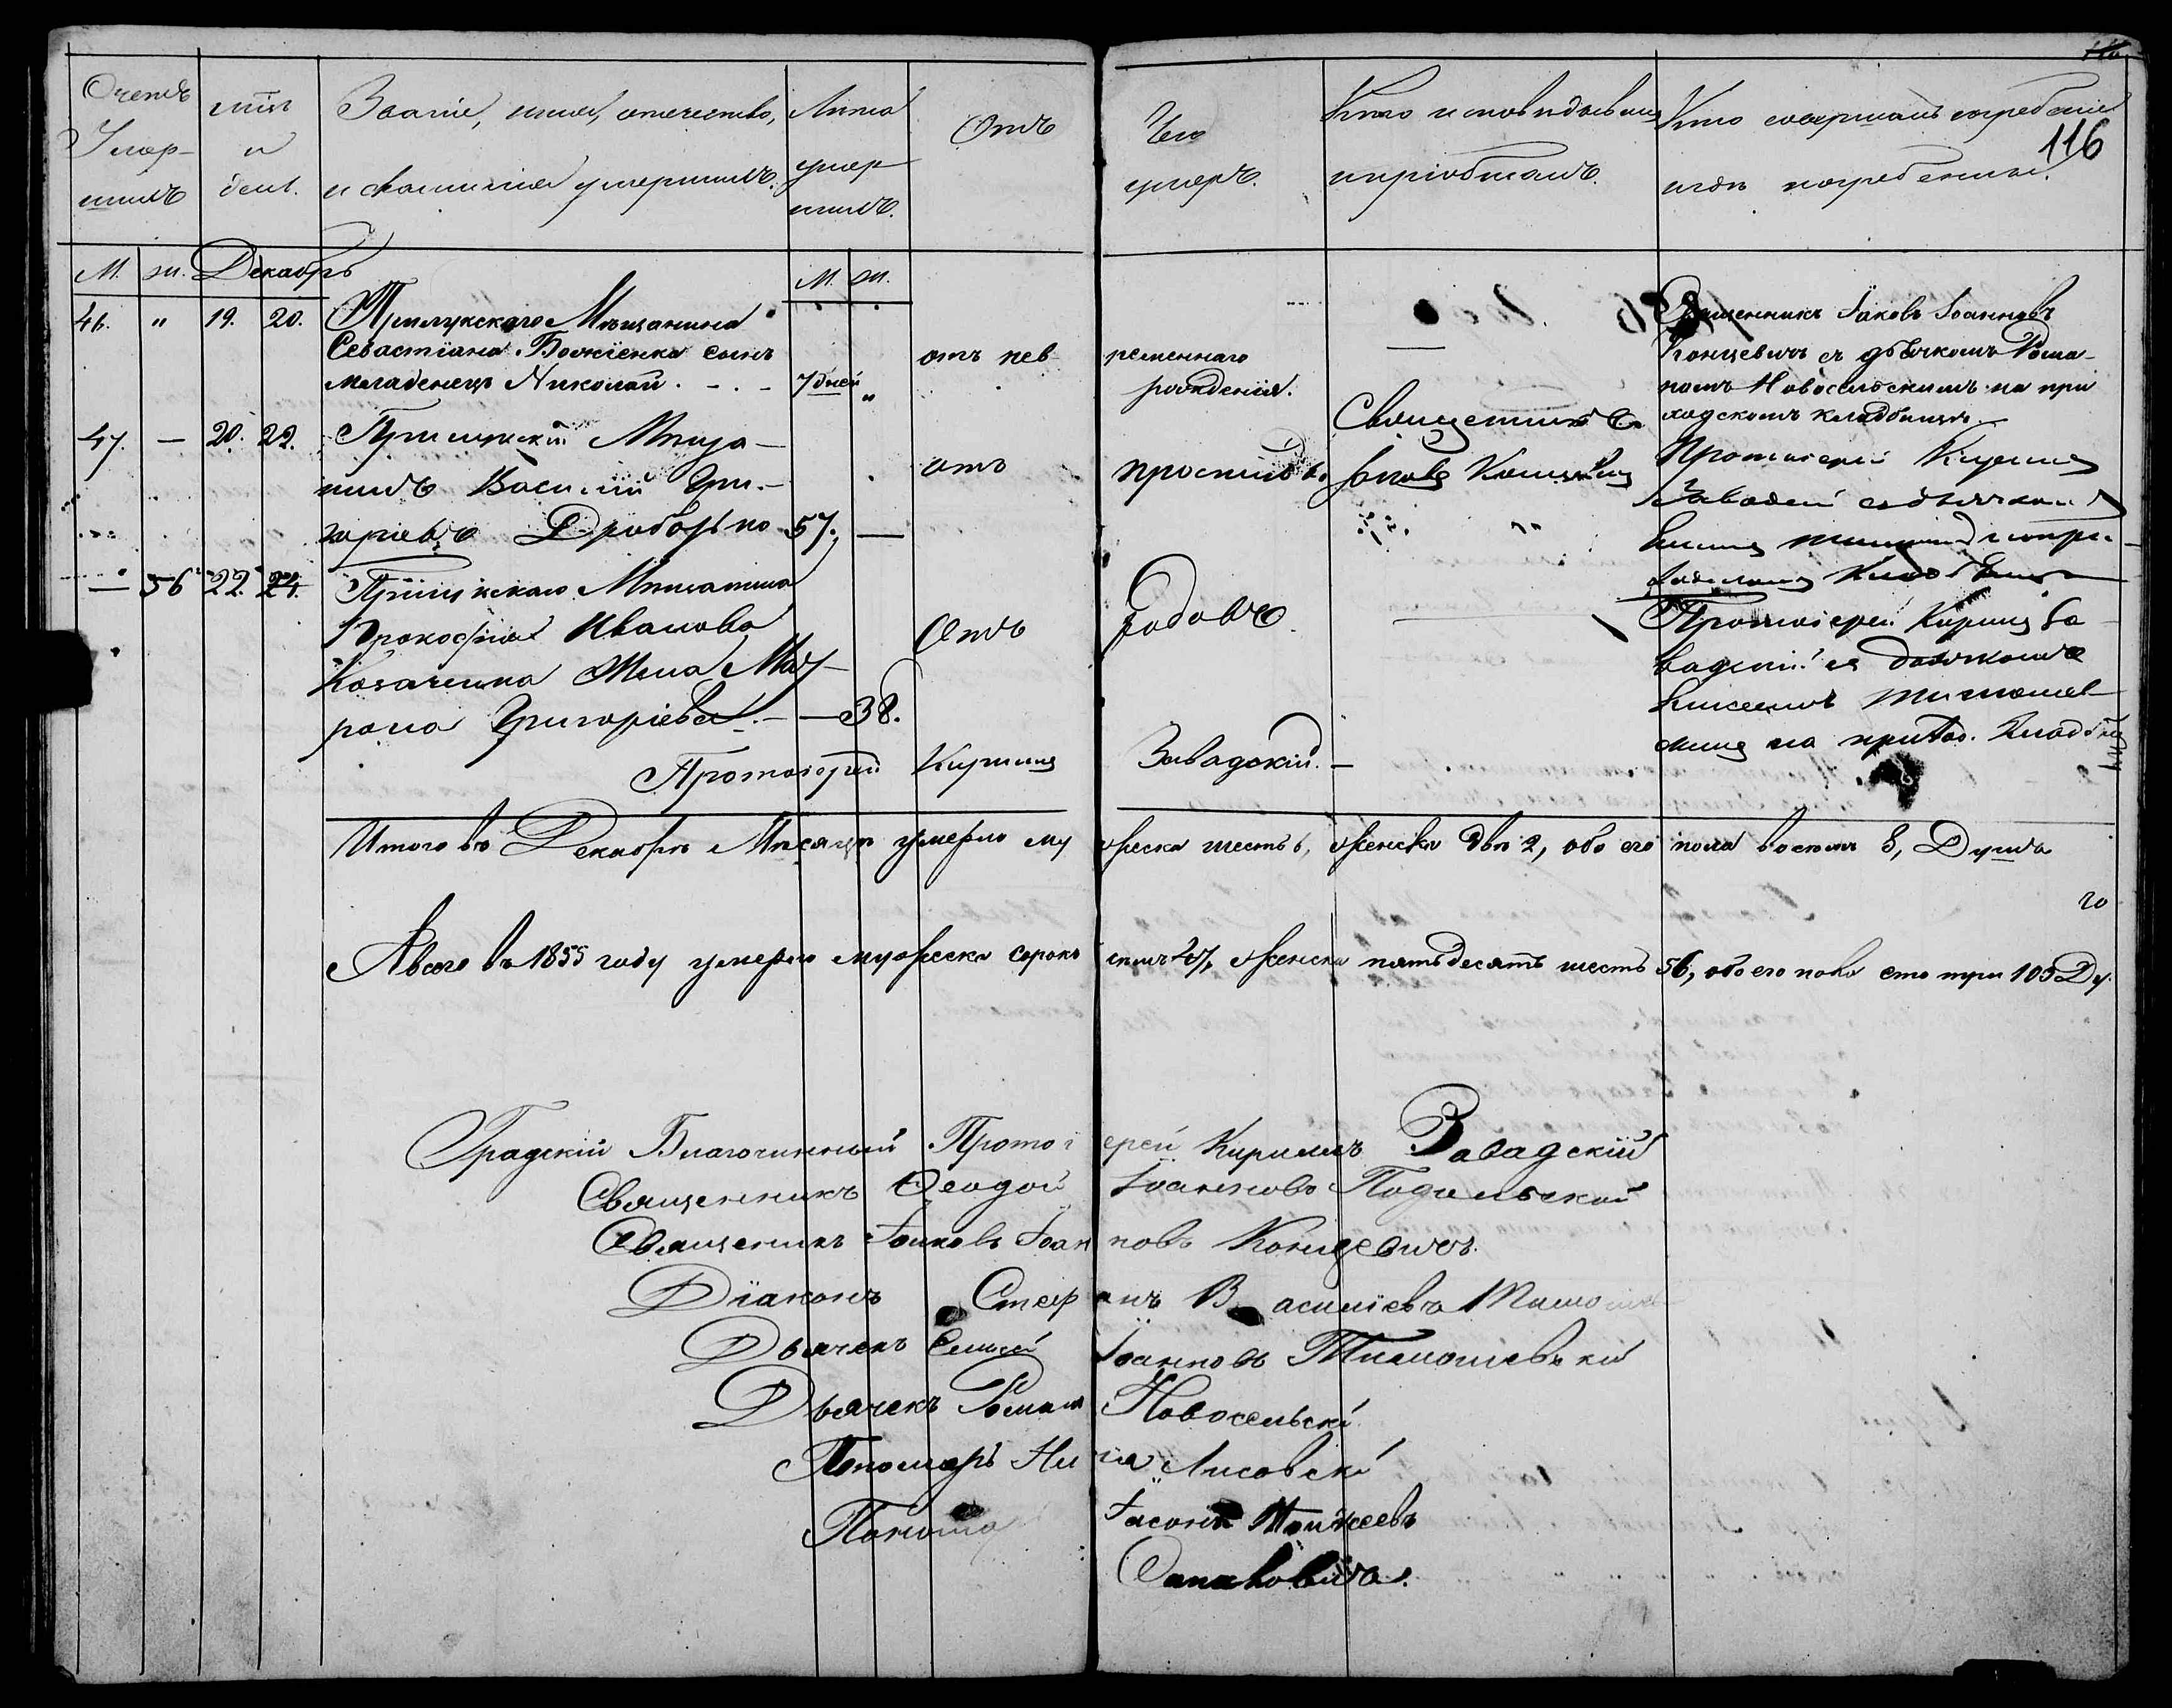 116
Счетъ
Умер-
шихъ
мць
и
день.
Званіе, имя, отечество,
и фамилія умершихъ.
Лѣта
умер
шихъ.
Отъ
Чего
умеръ.
Кто исповѣдывалъ
и пріобщалъ.
Кто совершалъ погребеніе
и гдѣ погребены.
116
М. ж. Декабрь
М. ж.
46. " 19. 20. Прилукского Мѣщанина
Севастіана Божіенка сынъ
младенецъ Николай. - . - 7 дней "
отъ нев ременнаго
рожденія.
—
Священникъ Іаковъ Іоанновъ
Концевичъ съ дьячкомъ Рома-
номъ Новосельскимъ на при
ходскомъ кладбищѣ.
47. — 20. 22. Прилуцкій Мѣща-
нинъ Василій Гри-
горіевъ Дроботько 57. —
отъ простуды.
Священникъ
Іаковъ Концевичъ
Протоіерей Кирилъ
Завадскій съ дьячкомъ
— 56 22. 24. Прилукскаго Мѣщанина
Прокофія Иванова
Козаченка Жена Мод-
рона Григоріева. - — 38.
Отъ родовъ.
Протоіерей Кирилъ За
вадскій съ дьячкомъ
Елисеемъ Тимошев
скимъ на приход. Кладби
щѣ
Протоіерей Кирилъ Завадскій. —
Итого въ Декабрѣ Мѣсяцѣ умерло му жеска шесть 6, женска двѣ 2, обоего пола восемь 8, Душъ
го
А всего въ 1855 году умерло мужеска сорокъ семь 47, женска пятьдесятъ шесть 56, обоего пола сто три 103 Ду.
Градскій Благочинный Протоі ерей Кириллъ Завадскій
Священникъ Ѳеодо Іоанновъ Подольскій
Священикъ Іаковъ Іоан новъ Концевичъ.
Діаконъ Стеф анъ Василіевъ
Дьячекъ Елисей Іоанновъ Тимошевскій
Дьячекъ Романъ Новосельскі
Пономарь Ни Лисовскі
Понома Іасонъ Моѵсеевъ